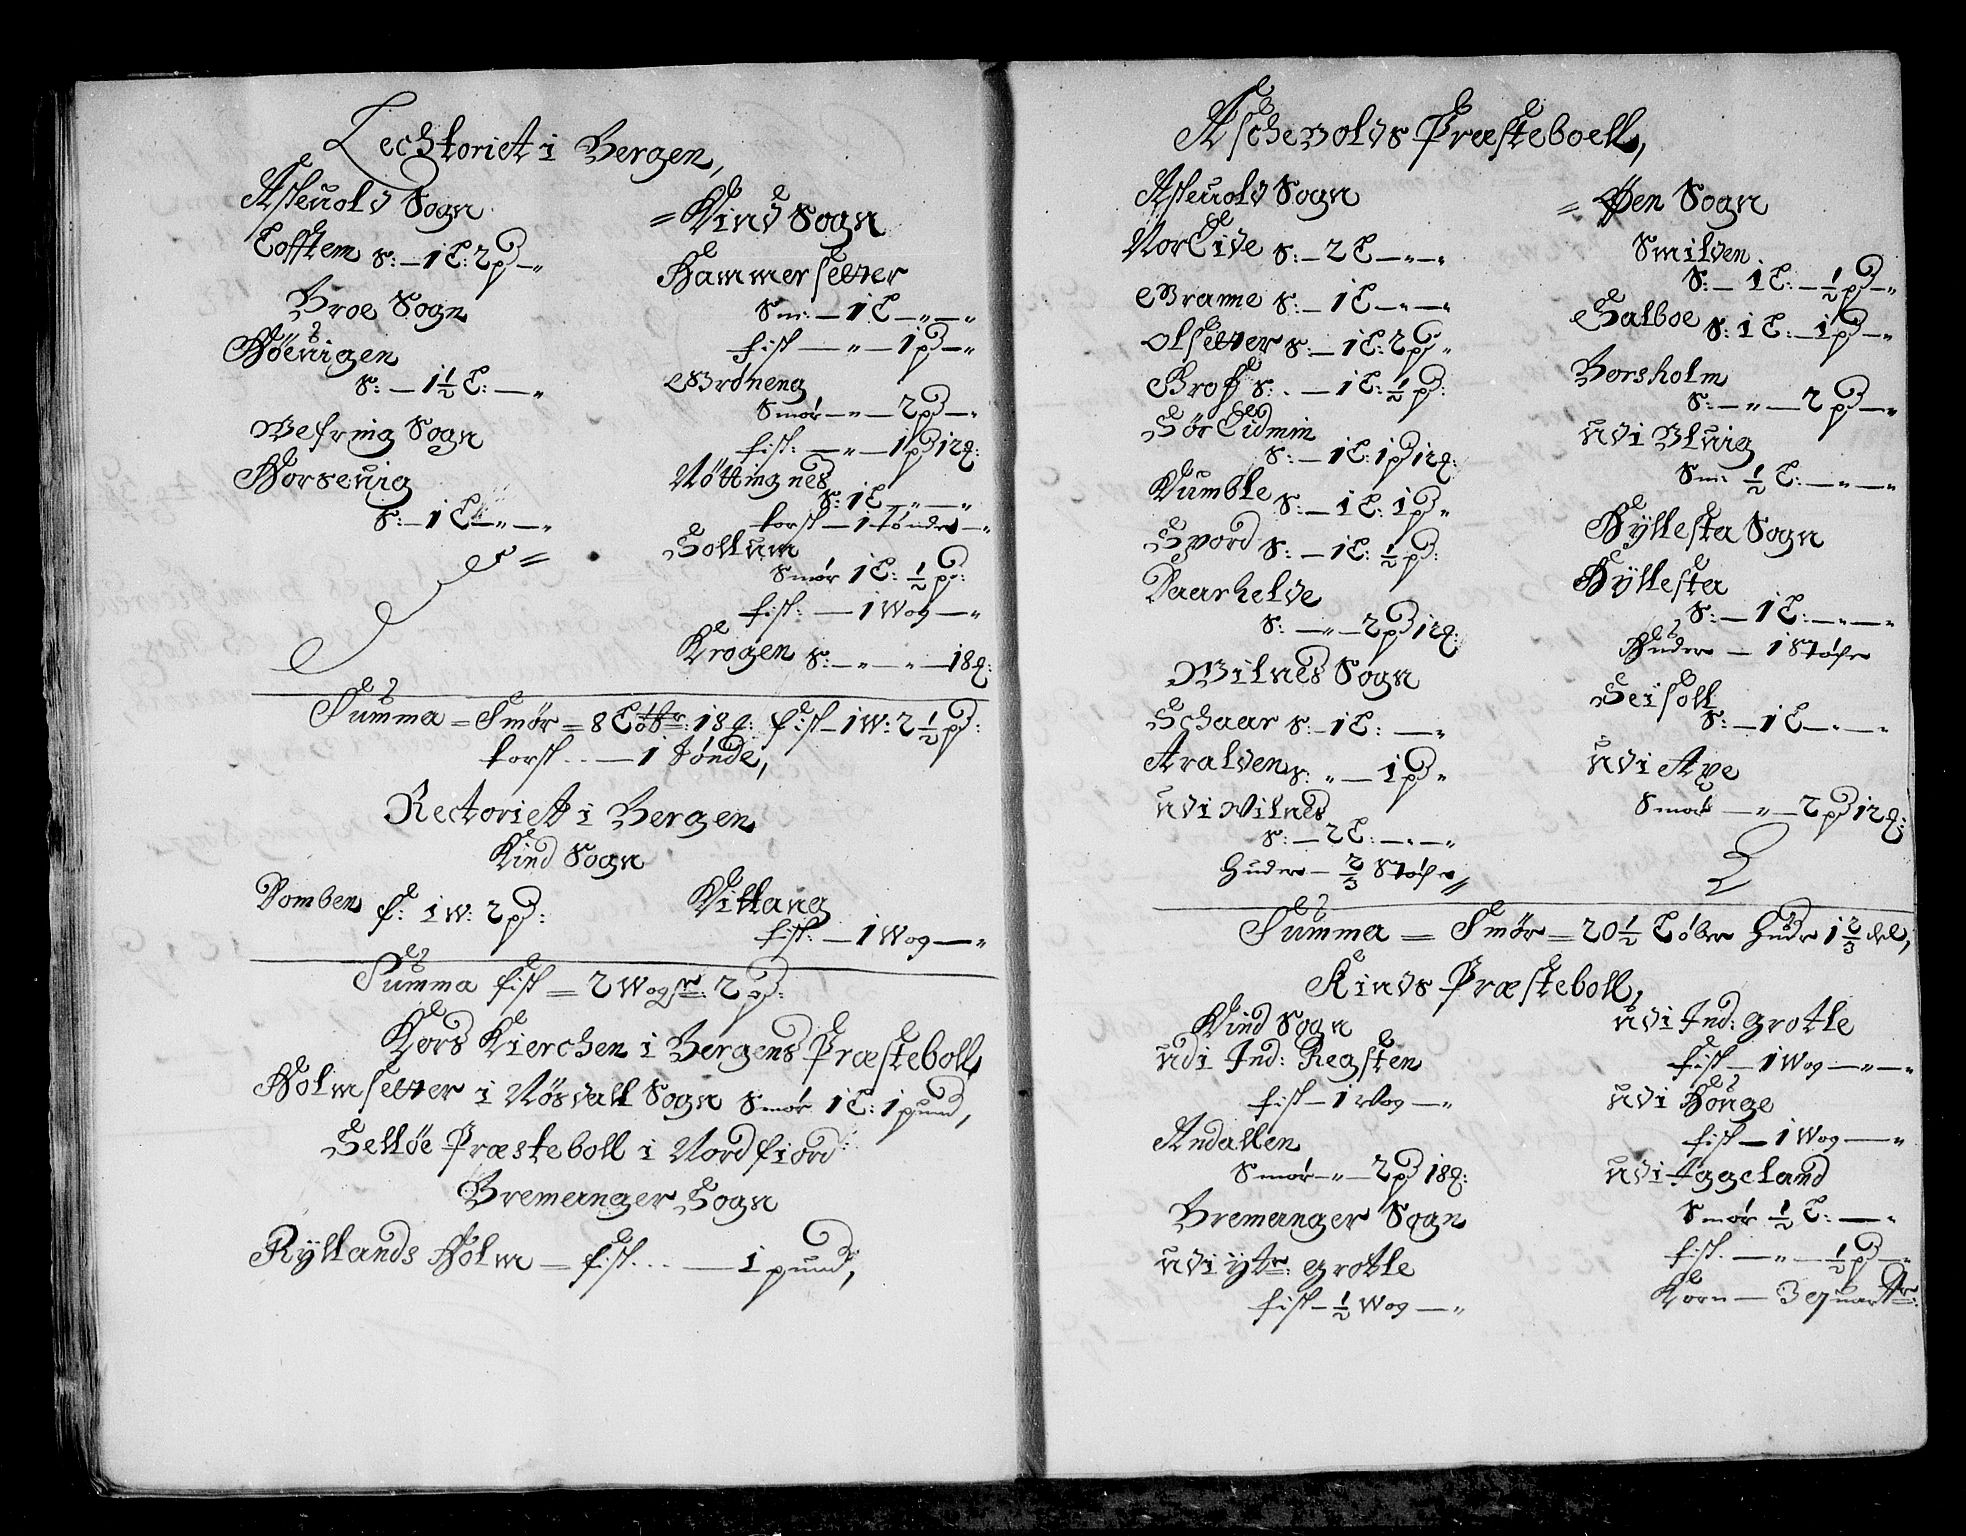 Lechtoriet i Bergen,
Askeuold Sogn
Tofftem S: — 1 T: 2 p —"
Broe Sogn
Høeuigen
S: — 1½ T: — "
Vefring Sogn
Horseuig
S: — 1 T — " — "
= Kind Sogn
Hammersetter
Sm: — 1 T — " — "
fisk — " — 1 p — "
Grøneng
Smør — " — 2 p — "
fisk: — " — 1 p 12 :
Nøttingnes
S: 1 T — " — "
torsk — 1 tønde — "
Sollum
Smør 1 T: ½ p:
fisk: — 1 Wog — "
Krogen S: — " — " — 18 :
Summa = Smør = 8 Tøbr: 18 : fisk — 1 W: 2½ p:
torsk . . — 1 tønde,
Rectoriet i Bergen
Kind Sogn
Domben f: 1 W: 2 p:
Villang
fisk: — 1 Wog — "
Summa fisk = 2 Wogr: 2 p:
Kors Kierchen i Bergens Præsteboll
Holmsetter i Nøsdall Sogn Smør 1 T: 1 pund,
Selløe Præsteboll i Nordfiord
Bremanger Sogn
Ryllands Holm = fisk . . . — 1 pund,
Aschevolds Præsteboell,
Askeuold Sogn
Norlide S: — 2 T — " — "
Grame S: — 1 T — " — "
Olsetter S: — 1 T: 2 p "
Grof S: . — 1 T: ½ p:
Sør Lidmin
S: — 1 T: 1 p 12 :
Kumble S: — 1 T: 1 p "
Svord S: — 1 T: ½ p:
Daarhelde
S: — " — 2 p 12 :
Vilnes Sogn
Schaar S: — 1 T: — "
Aralden S: " — 1 p "
Udi Vilnes
S: — 2 T: — " — "
Huder — 2/3 Støche
= Øen Sogn
Smilden
S: — 1 T: — ½ p — "
Salboe S: 1 T: — 1 p — "
Vorsholm
S: — " — 2 p — "
Udi Vluig
Sm: ½ T: — " — "
Hyllesta Sogn
Hyllesta
S: — 1 T: — " — "
Huder — 1 Støche
Leisoll
S: — 1 T — " — "
Udi Ave
Smør — " — 2 p 12 :
Summa = Smør = 20½ Tøber Hude 1 2/3 del,
Kinds Præsteboll,
Kind Sogn
Udi Ind: Regsten
fisk — 1 Wog — "
Andallen
Smør — " — 2 p 18 :
Bremanger Sogn
Udi Ytr: Grotle
fisk — ½ Wog — "
Udi Ind: Grotle
fisk — 1 Wog — " — "
Udi Høuge
fisk — 1 Wog — "
Udi Iggeland
Smør ½ T: — "
fisk. — " — ½ p — "
Korn — 3 quartr: